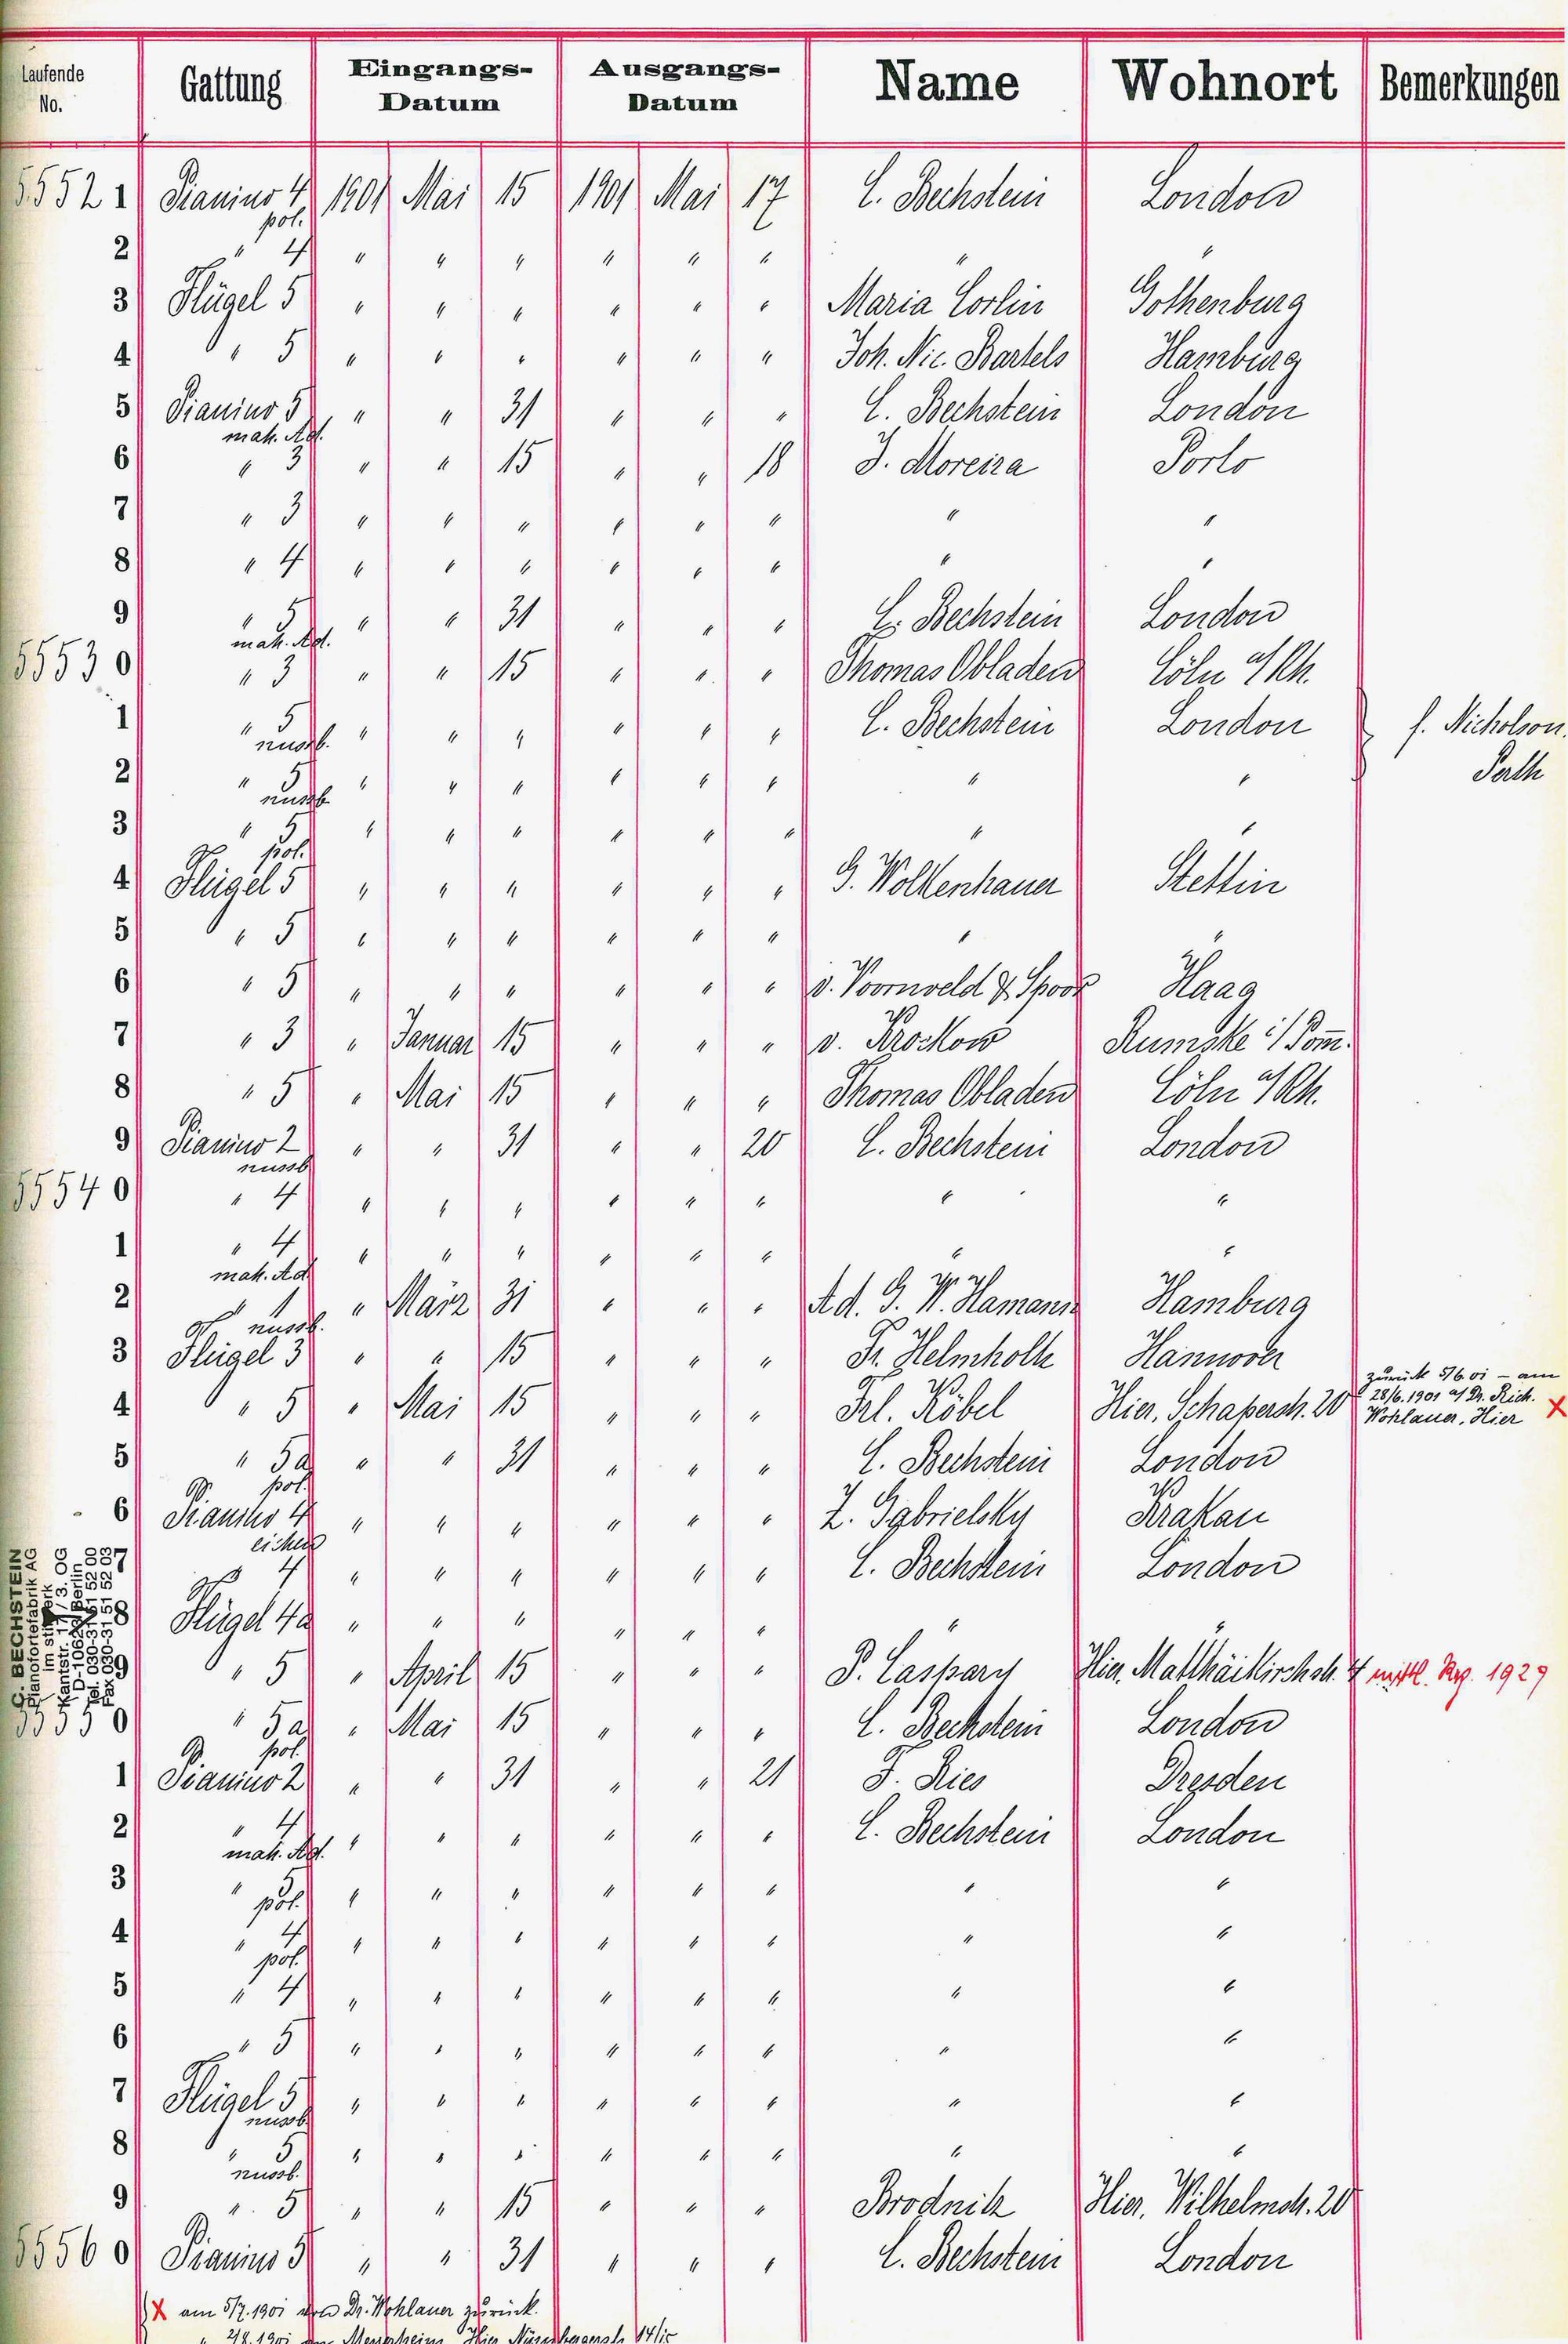 Laufende No. Gattung Eingangs-Datum Ausgangs-Datum Name Wohnort Bemerkungen
55521 Pianino 4 pol. 1901 Mai 15 1901 Mai 17 C. Bechstein London
2 " 4 " " " " " " " "
3 Flügel 5 " " " " " " Maria Corlin Gothenburg
4 " 5 " " " " " " Joh. Nic. Bartels Hamburg
5 Pianino 5 mah. " " 31 " " " C. Bechstein London
6 " 3 " " 15 " " 18 J. Moreira Porto
7 " 3 " " " " " " " "
8 " 4 " " " " " " " "
9 " 5 mah. " " 31 " " " C. Bechstein London
55530 " 3 " " 15 " " " Thomas Obladen Cöln a/Rh.
1 " 5 nussb. " " " " " " C. Bechstein London f. Nicholson.
2 " 5 nussb. " " " " " " " " Perth
3 " 5 pol. " " " " " " " "
4 Flügel 5 " " " " " " G. Wolkenhauer Stettin
5 " 5 " " " " " " " "
6 " 5 " " " " " " v. Voornveld & Spoor Haag
7 " 3 " Januar 15 " " " v. Krockow Rumske i/Pom.
8 " 5 " Mai 15 " " " Thomas Obladen Cöln a/Rh.
9 Pianino 2 nussb " " 31 " " 20 C. Bechstein London
55540 " 4 " " " " " " " "
1 " 4 mah. " " " " " " " "
2 " 1 nussb. " März 31 " " " Ad. G. W. Hamann Hamburg
3 Flügel 3 " " 15 " " " Fr. Helmholz Hannover
4 " 5 " Mai 15 " " " Frl. Köbel Hier, Schaperstr. 20 zurück 5/6.01 - am
28/6.1901 a/ Dr. Rich.
Wohlauer, Hier X
5 " 5a pol. " " 31 " " " C. Bechstein London
6 Pianino 4 eichen " " " " " " Z. Gabrielsky Krakau
7 " 4 " " " " " " C. Bechstein London
8 Flügel 4a " " " " " " " "
9 " 5 " April 15 " " " P. Caspary Hier, Matthäikirchstr. 4 1929
C. BECHSTEIN
Pianofortefabrik AG
im stilwerk
Kantstr. 17 / 3. OG
55550 " 5a pol. " Mai 15 " " " C. Bechstein London
1 Pianino 2 " " 31 " " 21 F. Ries Dresden
2 " 4 mah. " " " " " " C. Bechstein London
3 " pol. " " " " " " " "
4 " 4 pol. " " " " " " " "
5 " 4 " " " " " " " "
6 " 5 " " " " " " " "
7 Flügel 5 nussb " " " " " " " "
8 " 5 nussb. " " " " " " " "
9 " 5 " " 15 " " " Brodnitz Hier, Wilhelmstr. 20
55560 Pianino 5 " " 31 " " " C. Bechstein London
X am 5/7.1901 von Dr. Wohlauer zurück.